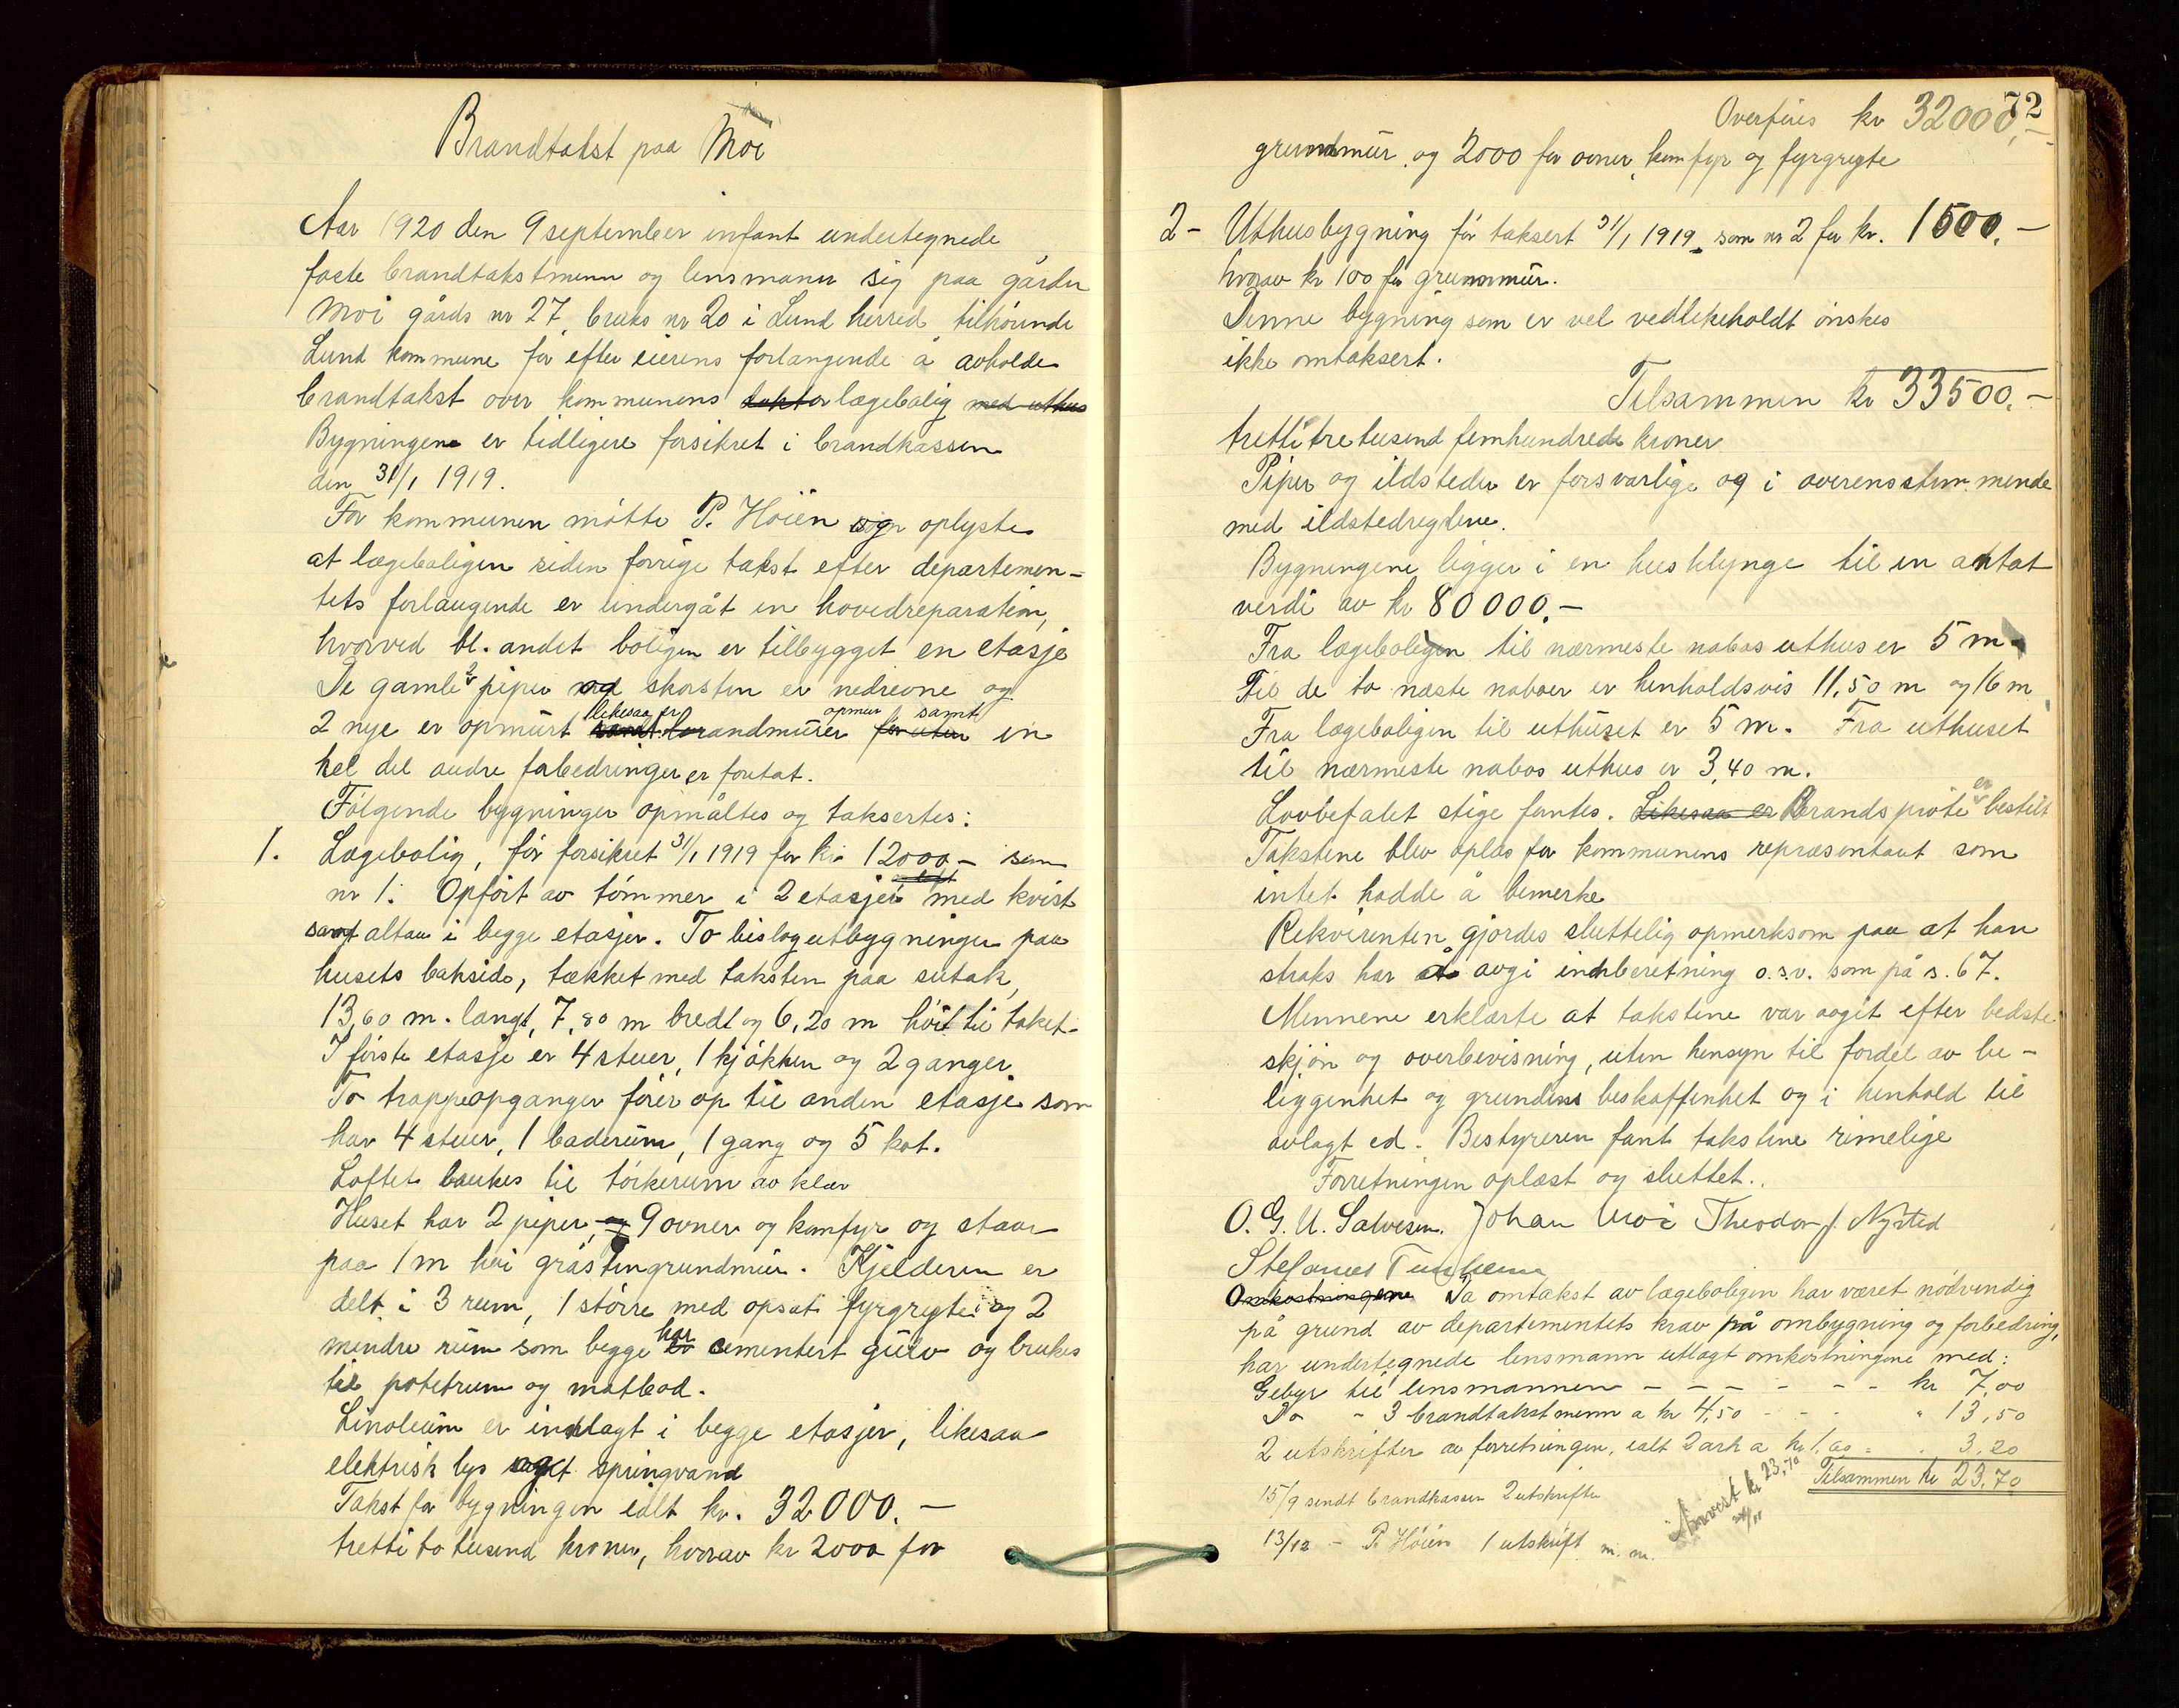 Brandtakst paa Moi
Aar 1920 den 9 september infant undertegnede
faste brandtakstmenn og lensmann sig paa gården
Moi gårds nr 27, bruks nr 20 i Lund herred tilhörende
Lund kommune for efter eierens forlangende å avholde
brandtakst over kommunens doktor lægebolig med uthus
Bygningene er tidligere forsikret i brandkassen
den 31/1 1919.
For kommunen mötte P. Höien og oplyste
at lægeboligen siden forrige takst efter departemen-
tets forlangende er undergåt en hovedreparation,
hvorved bl. andet boligen er tilbygget en etasje
De gamle 2 piper og skorsten er nedrevne og
2 nye er opmürt likesaa er brandmürer opmur samt en
hel del andre forbedringer er foretat.
Fölgende bygninger opmåltes og taksertes:
1. Lægebolig, för forsikret 31/1 1919 for kr 12000 - som
nr 1. Opfört av tömmer i 2 etasjer med kvist
samt altan i begge etasjer. To bislagutbygninger paa
husets bakside, tækket med taksten paa sutak,
13,60 m. langt, 7,80 m bredt og 6,20 m höit til taket.
I förste etasje er 4 stuer, 1 kjökken og 2 ganger.
To trappeopganger förer op til anden etasje som
har 4 stuer, 1 baderüm, 1 gang og 5 kot.
Loftet bruckes til törkerum av klær
Huset har 2 piper, og 9 ovner og komfyr og staar
paa 1 m höi gråstingrundmür. Kjelderen er
delt i 3 rum, 1 större med opsat fyrgryte og 2
mindre rüm som begge har cementert gülv og brukes
til potetrum og matbod.
Linoleüm er indlagt i begge etasjer, likesaa
elektrisk lys og springvand
Takst for bygningen ialt kr. 32000.-
tretti to tusend kroner, hvorav kr 2000 for
72
Overföres kr 32000,-
grundmür og 2000 for ovner, komfyr og fyrgryte
2- Uthusbygning för taksert 31/1 1919 som nr 2 for kr. 1500.-
hvorav kr 100 for grunnmür.
Denne bygning som er vel vedlikeholdt önskes
ikke omtaksert.
Tilsammen kr 33500.-
tretti tre tusend femhundrede kroner
Piper og ildsteder er forsvarlige og i overensstemmende
med ildstedreglene.
Bygningene ligger i en husklynge til en antat
verdi av kr 80000.-
Fra lægeboligen til nærmeste nabos uthus er 5 m.
Til de to næste naboer er henholdsvis 11,50 m og 16 m
Fra lægeboligen til uthüset er 5 m. Fra uthuset
til nærmeste nabos uthus er 3,40 m.
Lovbefalet stige fantes. Likesaa er Brandspröite er bestilt
Takstene blev oplæs for kommunens repræsentant som
intet hadde å bemerke
Rekvirenten gjordes sluttelig opmerksom paa at han
straks har å avgi indberetning o.s.v. som på s. 67.
Mennene erklærte at takstene var avgit efter bedste
skjön og overbevisning, uten hensyn til fordel av be-
liggenhet og grundens beskaffenhet og i henhold til
avlagt ed. Bestyreren fant takstene rimelige
Forretningen oplæst og sluttet.
O. G. U. Salvesen. Johan Moi Theodor J. Nysted
Stefanus
Omkostningene Da omtakst av lægeboligen har været nödvendig
på grund av departementets krav på ombygning og forbedring,
har undertegnede lensmann utlagt omkostningene med:
Gebyr til lensmannen - - - - - - kr 7,00
Do - 3 brandtakstmenn a kr 4,50 - - - " 13,50
2 utskrifter av forretningen, ialt 2 ark a kr 1,60 = . 3.20
Tilsammen kr 23,70
15/9 sendt brandkassen 2 utskrifter
Anvist kr 23,70
24/11
13/12 - P. Höien 1 utskrift m. m.